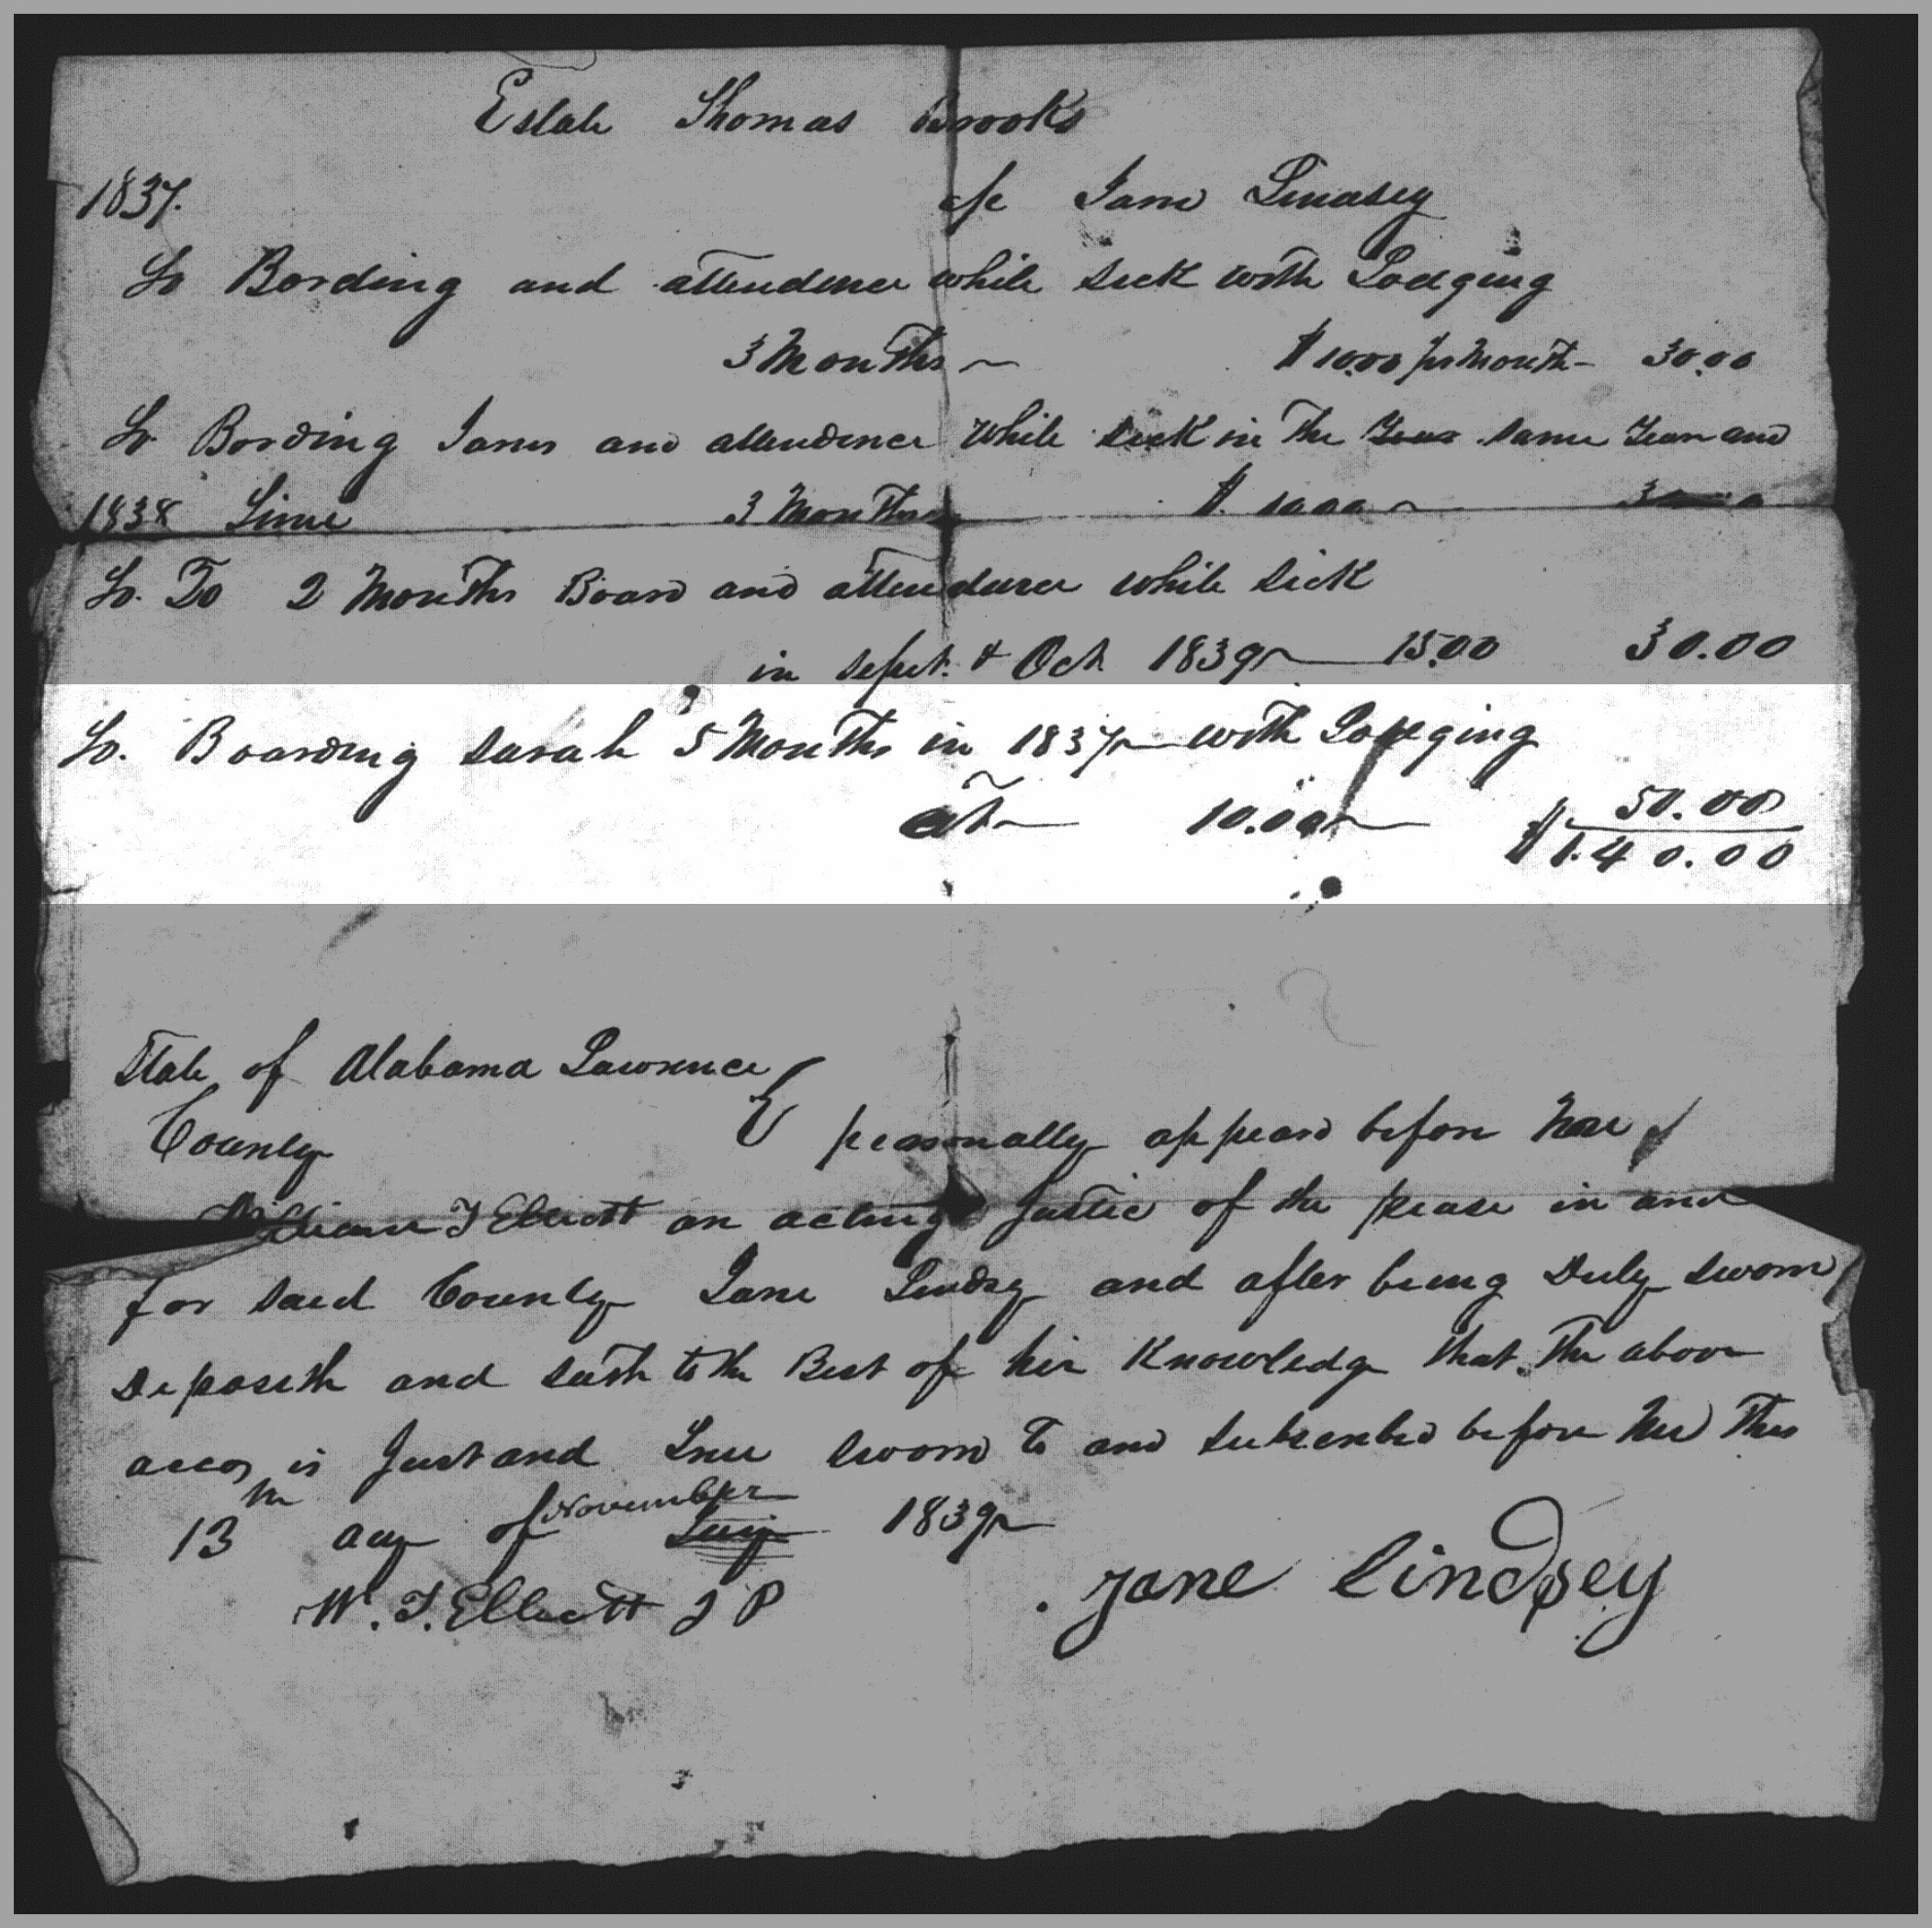 Estate Thomas Brooks
1837. Jane Lindsey
To Bording and attendence while sick with Lodging
3 Months $10.00 per Month - 30.00
To Bording James and attendence while sick in The Year same Year and
1838 Time 3 Months $ 10.00
To. To 2 Months Board and attendence while sick
in sept. & Oct 1839 15.00 30.00
To. Boarding Sarah 5 Months in 1837 with Lodging
at 10.00 50.00
$140.00
State of Alabama Lawrence
County personally appeard before me
William T Elliott an acting Justice of the pease in and
for said County Jane Lindsey and after being Duly sworn
Deposeth and saith to the Best of her Knowledge that The above
accot is Just and True sworn to and subscribed before me This
13th day of November July 1839
W. T. Elliott J P Jane Lindsey